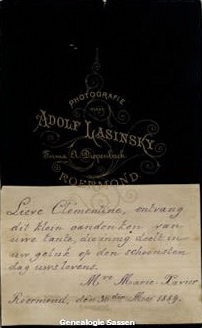 PHOTOGRAFIE
ADOLF LASINSKY
Firma A. Diepenbach
ROERMOND
Lieve Clémentine, ontvang
dit klein aandenken van
uwe tante, die innig deelt in
uw geluk op den schoonsten
dag uws levens.
Mre Marie-Xavier
Roermond, den 30sten Mei 1889.
Genealogie Sassen